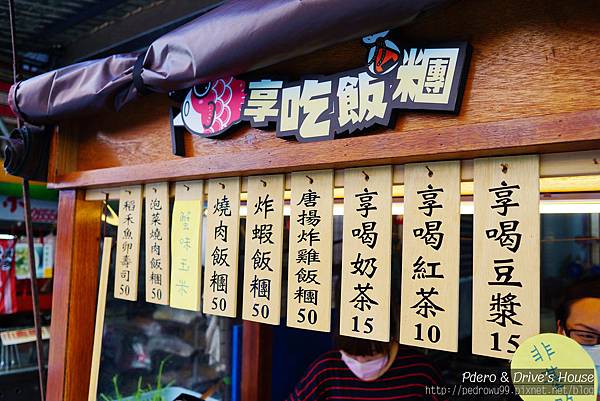 享吃飯糰
稻禾魚卵壽司 50
泡菜燒肉飯糰 50
蟹味玉米
燒肉飯糰 50
炸蝦飯糰 50
唐揚炸雞飯糰 50
享喝奶茶 15
享喝紅茶 10
享喝豆漿 15
Pdero & Drive's House
http://pedrowu99.pixnet.net/blog